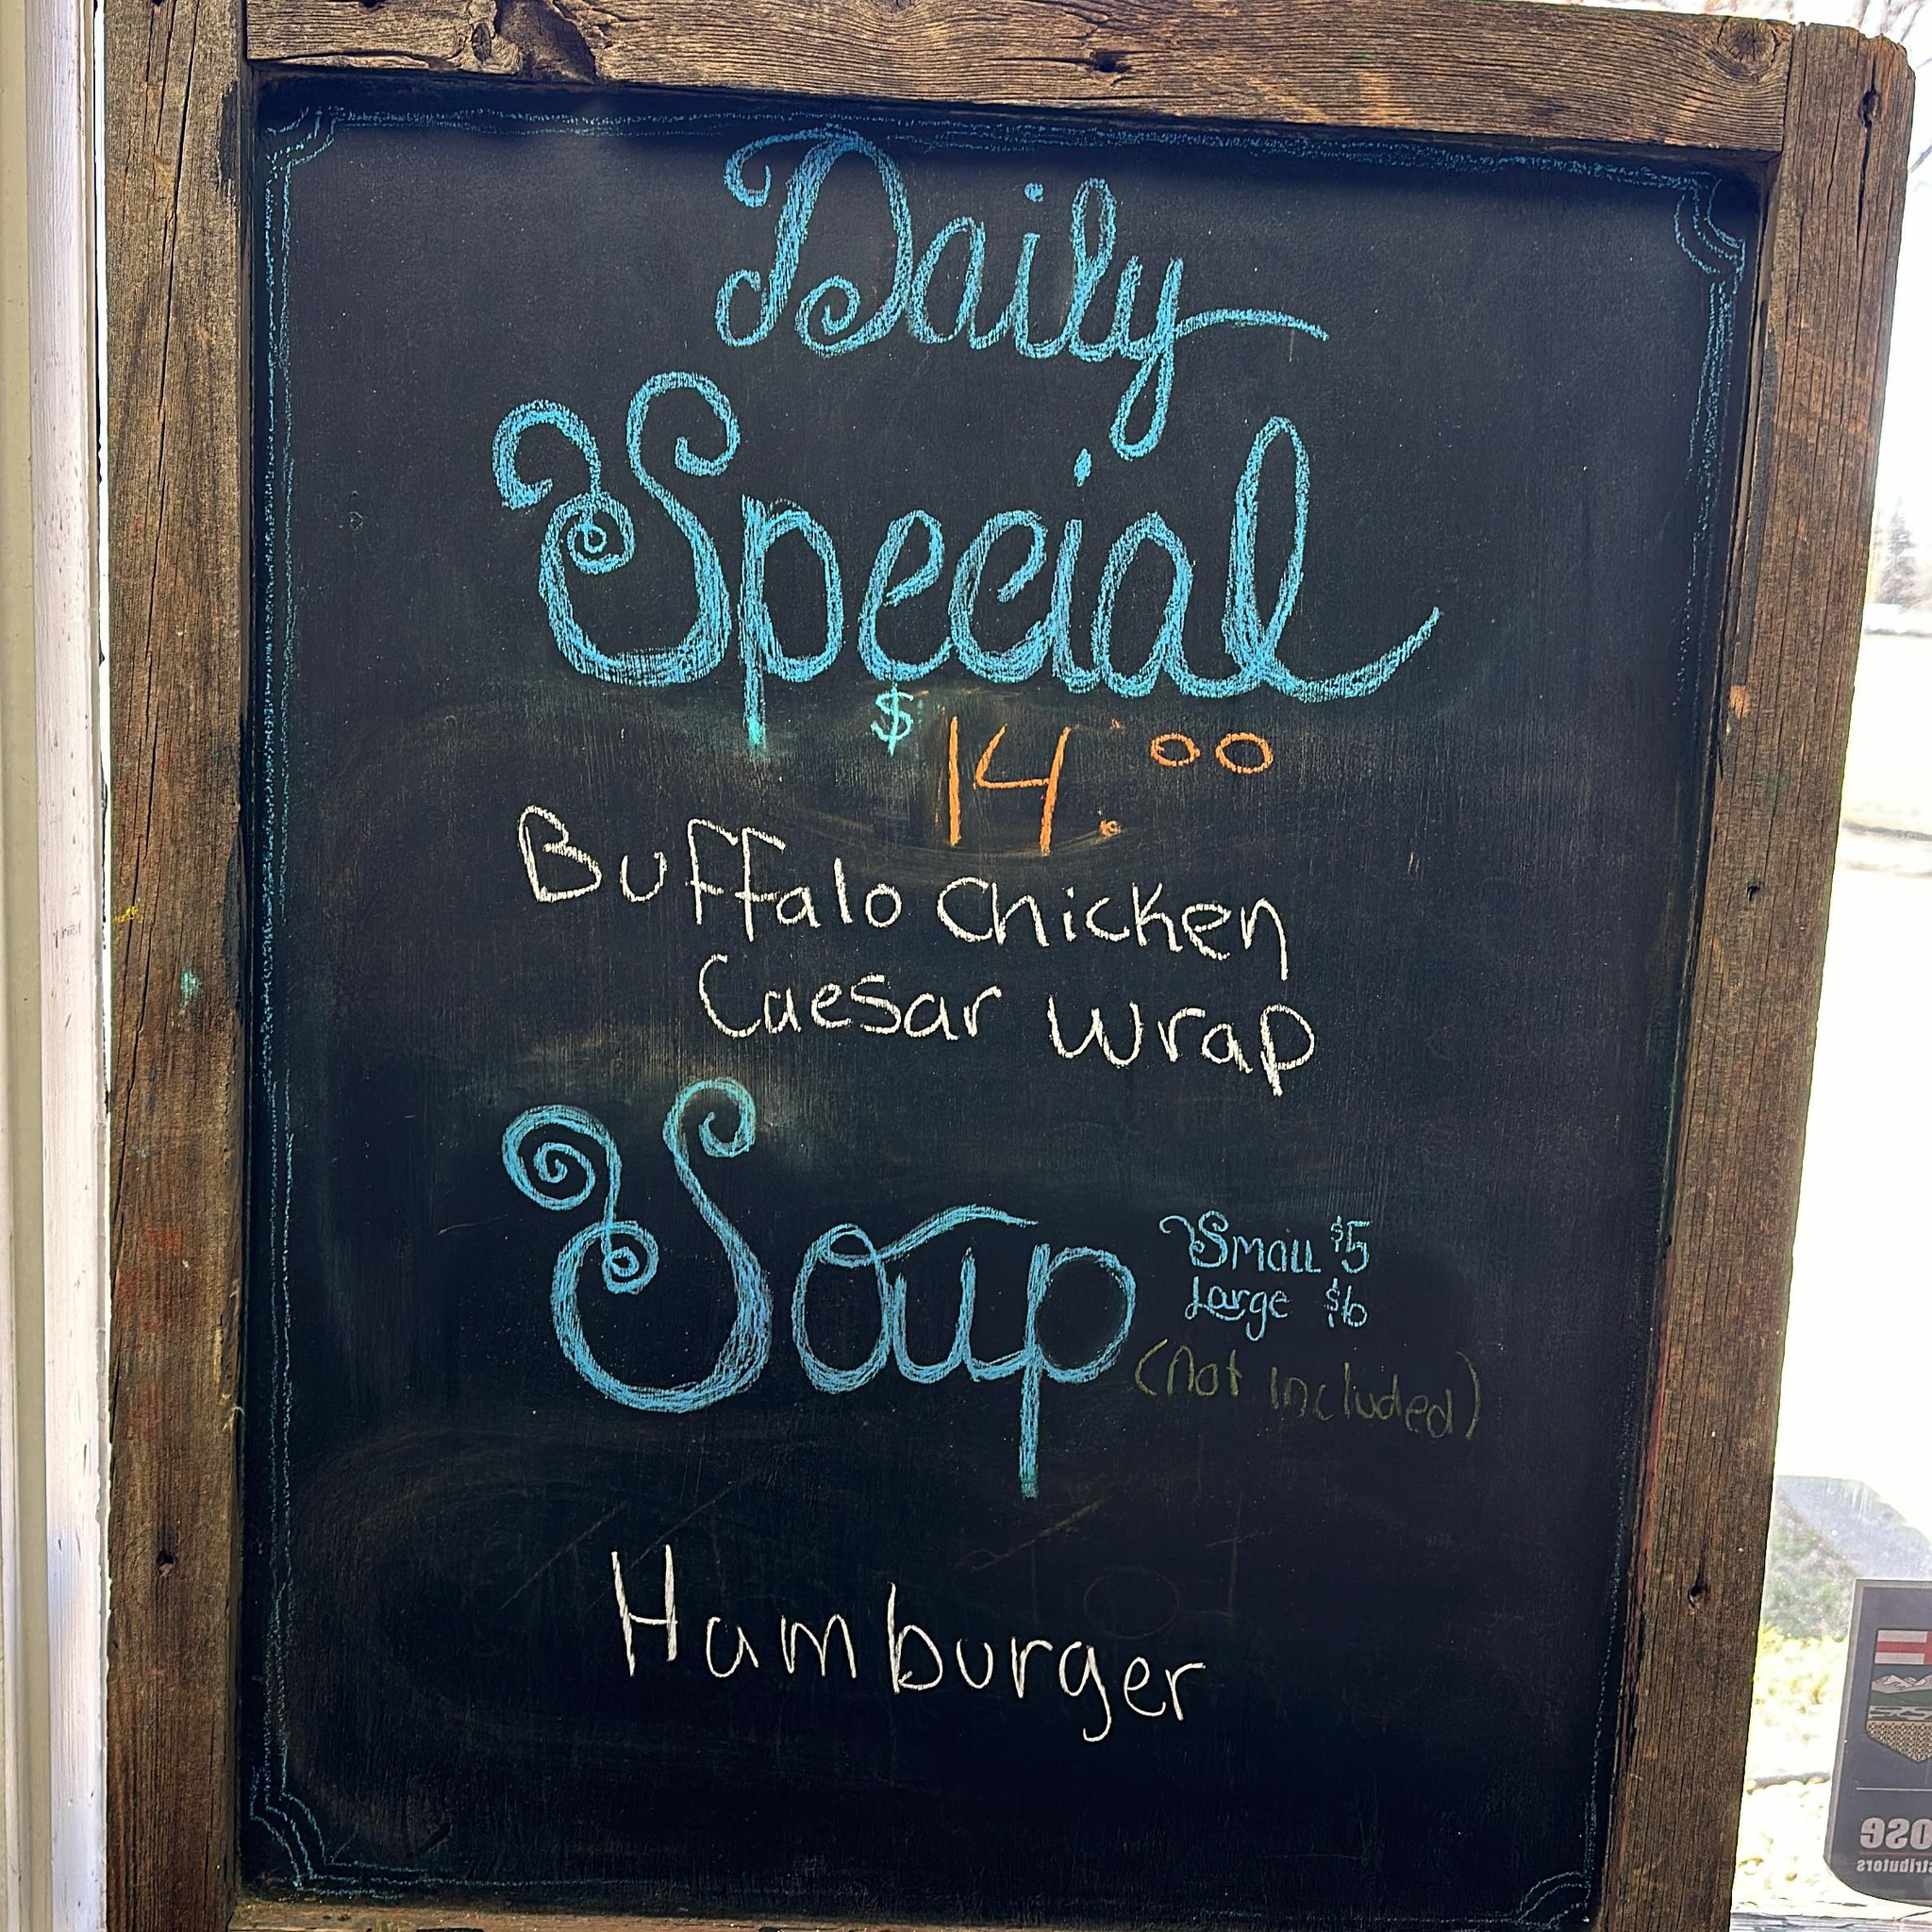 Daily
Special
$14.00
Buffalo Chicken
Caesar Wrap
Soup
Small $5
Large $6
(not included)
Hamburger